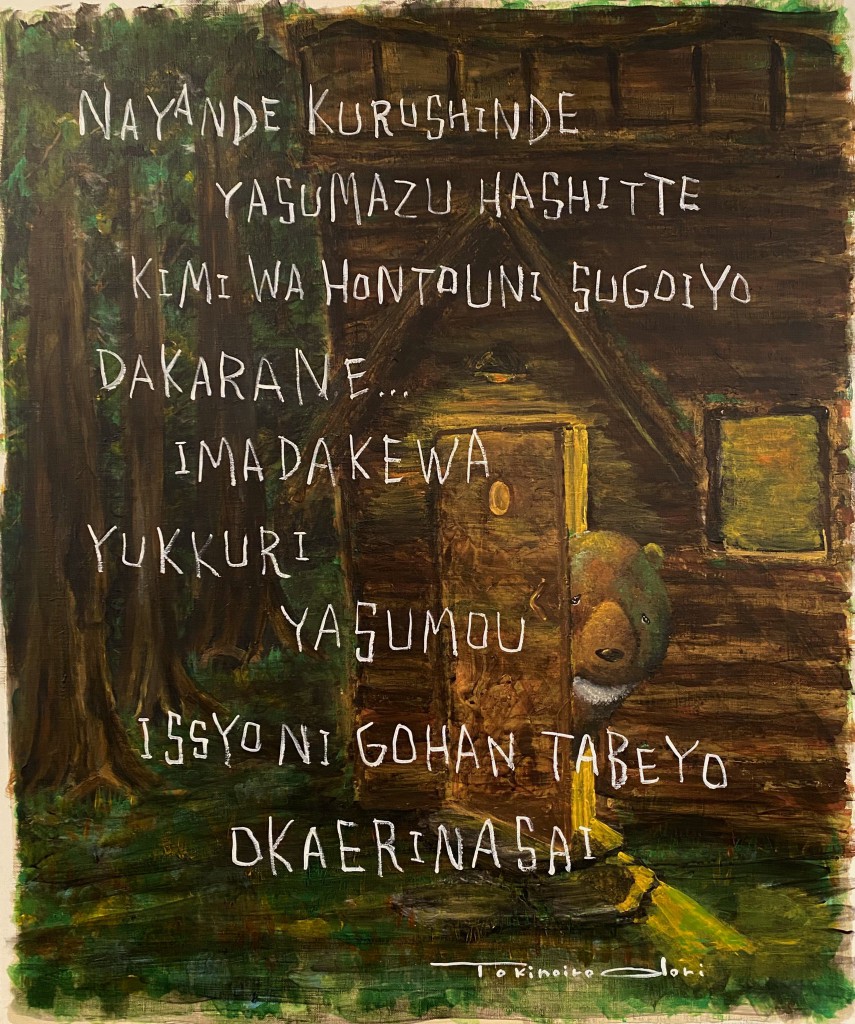 NAYANDE KURUSHINDE
YASUMAZU HASHITTE
KIMI WA HONTOUNI SUGOIYO
DAKARANE...
IMADAKEWA
YUKKURI
YASUMOU
ISSYONI GOHAN TABEYO
OKAERINASAI